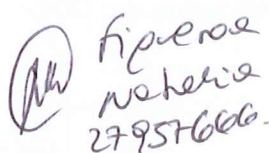 Figueroa
Natalia
279576606.